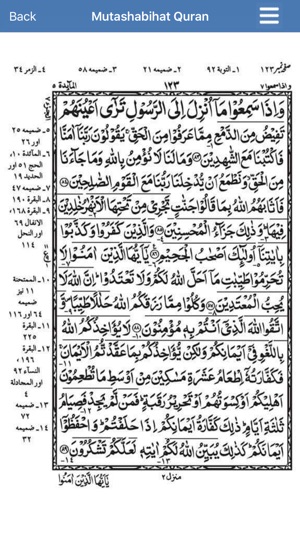 Back
Mutashabihat Quran
صفحہ نمبر ۱۲۳ ۱- التوبة ۹۲ ۲- ضمیمہ ۲۱ ۳- ضمیمہ ۵۸ ۴- الزمر ۳۴
واذا سمعوا ۷ ۱۲۳ المآئدة ۵
وَاِذَا سَمِعُوْا مَاۤ اُنْزِلَ اِلَى الرَّسُوْلِ تَرٰۤى اَعْيُنَهُمْ
تَفِيْضُ مِنَ الدَّمْعِ مِمَّا عَرَفُوْا مِنَ الْحَقِّ ۚ يَقُوْلُوْنَ رَبَّنَاۤ اٰمَنَّا
فَاكْتُبْنَا مَعَ الشّٰهِدِيْنَ ﴿۸۳﴾ وَمَا لَنَا لَا نُؤْمِنُ بِاللّٰهِ وَمَا جَآءَنَا
مِنَ الْحَقِّ ۙ وَنَطْمَعُ اَنْ يُّدْخِلَنَا رَبُّنَا مَعَ الْقَوْمِ الصّٰلِحِيْنَ ﴿۸۴﴾
فَاَثَابَهُمُ اللّٰهُ بِمَا قَالُوْا جَنّٰتٍ تَجْرِيْ مِنْ تَحْتِهَا الْاَنْهٰرُ خٰلِدِيْنَ
فِيْهَا ؕ وَذٰلِكَ جَزَآءُ الْمُحْسِنِيْنَ ﴿۸۵﴾ وَالَّذِيْنَ كَفَرُوْا وَكَذَّبُوْا
بِاٰيٰتِنَاۤ اُولٰٓئِكَ اَصْحٰبُ الْجَحِيْمِ ﴿۸۶﴾ يٰۤاَيُّهَا الَّذِيْنَ اٰمَنُوْا لَا
تُحَرِّمُوْا طَيِّبٰتِ مَاۤ اَحَلَّ اللّٰهُ لَكُمْ وَلَا تَعْتَدُوْا ؕ اِنَّ اللّٰهَ لَا
يُحِبُّ الْمُعْتَدِيْنَ ﴿۸۷﴾ وَكُلُوْا مِمَّا رَزَقَكُمُ اللّٰهُ حَلٰلًا طَيِّبًا ۪ وَّ
اتَّقُوا اللّٰهَ الَّذِيْۤ اَنْتُمْ بِهٖ مُؤْمِنُوْنَ ﴿۸۸﴾ لَا يُؤَاخِذُكُمُ اللّٰهُ
بِاللَّغْوِ فِيْۤ اَيْمَانِكُمْ وَلٰكِنْ يُّؤَاخِذُكُمْ بِمَا عَقَّدْتُّمُ الْاَيْمَانَ ۚ
فَكَفَّارَتُهٗۤ اِطْعَامُ عَشَرَةِ مَسٰكِيْنَ مِنْ اَوْسَطِ مَا تُطْعِمُوْنَ
اَهْلِيْكُمْ اَوْ كِسْوَتُهُمْ اَوْ تَحْرِيْرُ رَقَبَةٍ ؕ فَمَنْ لَّمْ يَجِدْ فَصِيَامُ
ثَلٰثَةِ اَيَّامٍ ؕ ذٰلِكَ كَفَّارَةُ اَيْمَانِكُمْ اِذَا حَلَفْتُمْ ؕ وَاحْفَظُوْۤا
اَيْمَانَكُمْ ؕ كَذٰلِكَ يُبَيِّنُ اللّٰهُ لَكُمْ اٰيٰتِهٖ لَعَلَّكُمْ تَشْكُرُوْنَ ﴿۸۹﴾
منزل ۲
يٰۤاَيُّهَا الَّذِيْنَ اٰمَنُوْا
۵- ضمیمہ ۲۵
اور ۲۶
۶- المائدة ۱۰،
الحج ۵۱ اور
الحديد ۱۹
۷- ضمیمہ ۴۷
۸- البقرة ۱۹۰
۹- البقرة ۱۶۸،
الانفال ۶۹
اور النحل
۱۱۴
۱۰- الممتحنة
۱۱ نیز
ضمیمہ
۶۴ اور ۱۱۶
۱۱- البقرة
۲۲۵
۱۲- البقرة
۱۹۶،
النساء ۹۲
اور المجادلة
۴
۱۳- ضمیمہ
۷۲
۱۴- ضمیمہ
۳۲